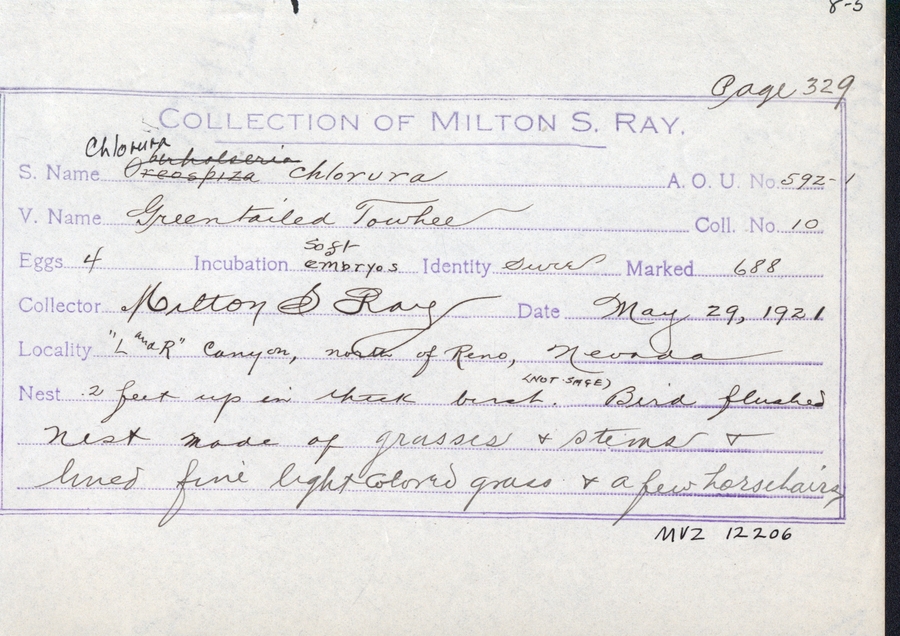 8-5
Page 329
COLLECTION OF MILTON S. RAY.
Chlorura
S. Name Oreospiza chlorura A. O. U. No. 592-1
V. Name Greentailed Towhee Coll. No. 10
soft
Eggs 4 Incubation embryos Identity sure Marked 688
Collector Milton S Ray Date May 29, 1921
Locality "L and R" Canyon, north of Reno, Nevada
(NOT SAGE)
Nest 2 feet up in thick bush. Bird flushed
nest made of grasses & stems &
lined fine light colored grass & a few horsehairs
MVZ 12206